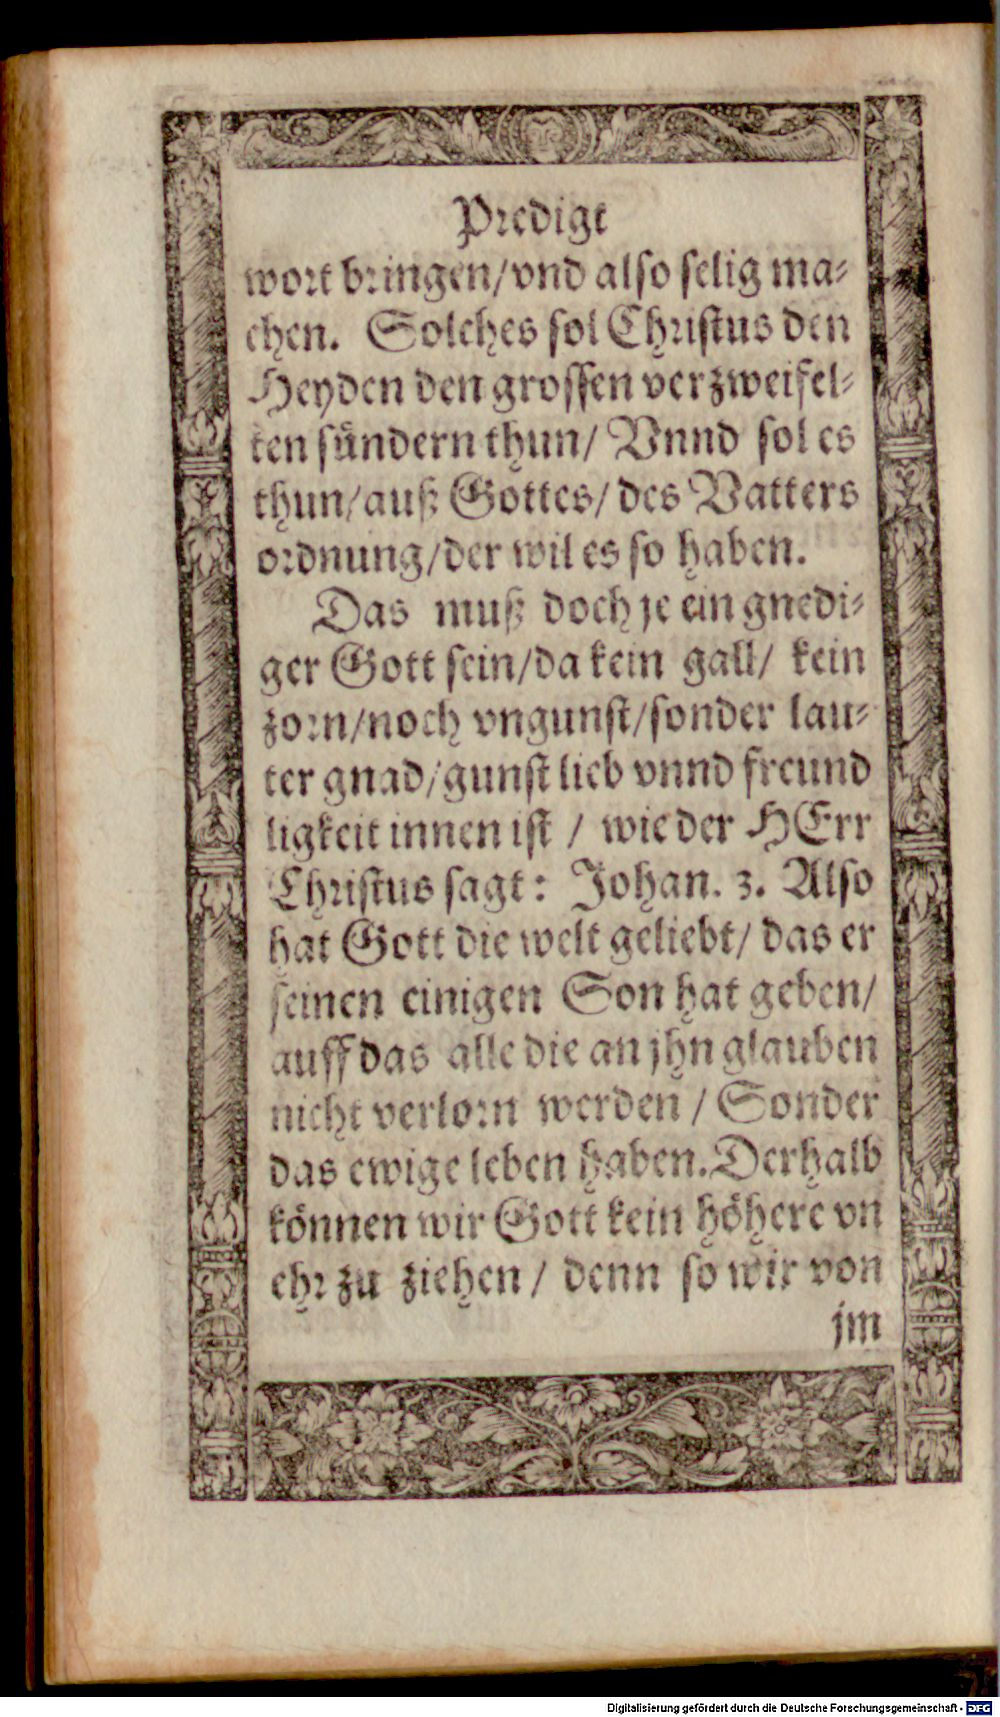 Predigt
wort bringen/vnd also selig ma-
chen. Solches sol Christus den
Heyden den grossen verzweifel-
ten sündern thun/ Vnnd sol es
thun/auß Gottes/ des Vatters
ordnung/der wil es so haben.
Das muß doch je ein gnedi-
ger Gott sein/da kein gall/ kein
zorn/noch vngunst/sonder lau-
ter gnad/gunst lieb vnnd freund
ligkeit innen ist / wie der HErr
Christus sagt: Johan. 3. Also
hat Gott die welt geliebt/ das er
seinen einigen Son hat geben/
auff das alle die an jhn glauben
nicht verlorn werden / Sonder
das ewige leben haben. Derhalb
können wir Gott kein höhere vn
ehr zu ziehen / denn so wir von
jm
Digitalisierung gefördert durch die Deutsche Forschungsgemeinschaft - DFG